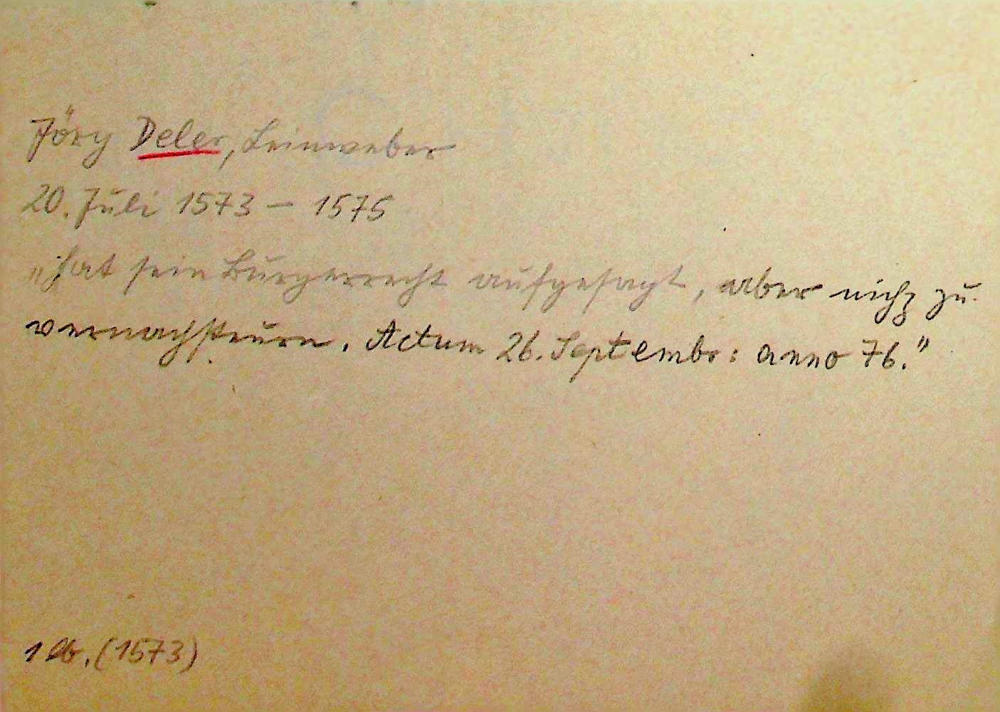 Jöry Deler, Leinweber
20. Juli 1573 – 1575
„hat sein Bürgerrecht aufgesagt, aber nichz zu
vernachsteurn. Actum 26. Septembr: anno 76."
1 lb. (1573)